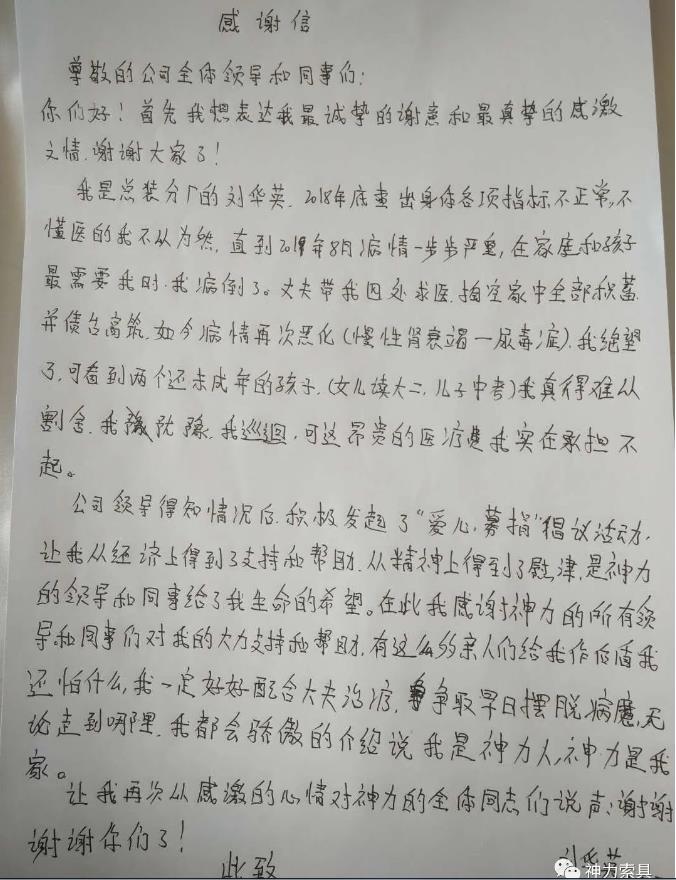 感谢信
尊敬的公司全体领导和同事们:
你们好!首先我想表达我最诚挚的谢意和最真挚的感激
之情.谢谢大家了!
我是总装分厂的刘华英.2018年底查出身体各项指标不正常,不
懂医的我不从为然,直到2019年8月病情一步步严重,在家庭和孩子
最需要我时.我病倒了。丈夫带我四处求医.掏空家中全部积蓄.
并债台高筑.如今病情再次恶化(慢性肾衰竭一尿毒症).我绝望
了,可看到两个还未成年的孩子.(女儿读大二,儿子中考)我真得难从
割舍.我犹豫.我巡迴,可这昂贵的医疗费我实在承担不
起。
公司领导得知情况后.积极发起了“爱心,募捐”倡议活动,
让我从经济上得到了支持和帮助.从精神上得到了慰津.是神力
的领导和同事给了我生命的希望。在此我感谢神力的所有领
导和同事们对我的大力支持和帮助,有这么多亲人们给我作后盾我
还怕什么,我一定好好配合大夫治疗,争取早日摆脱病魔,无
论走到哪里.我都会骄傲的介绍说我是神力人,神力是我
家。
让我再次从感激的心情对神力的全体同志们说声:谢谢
谢谢你们了!
此致
刘华英
神力索具